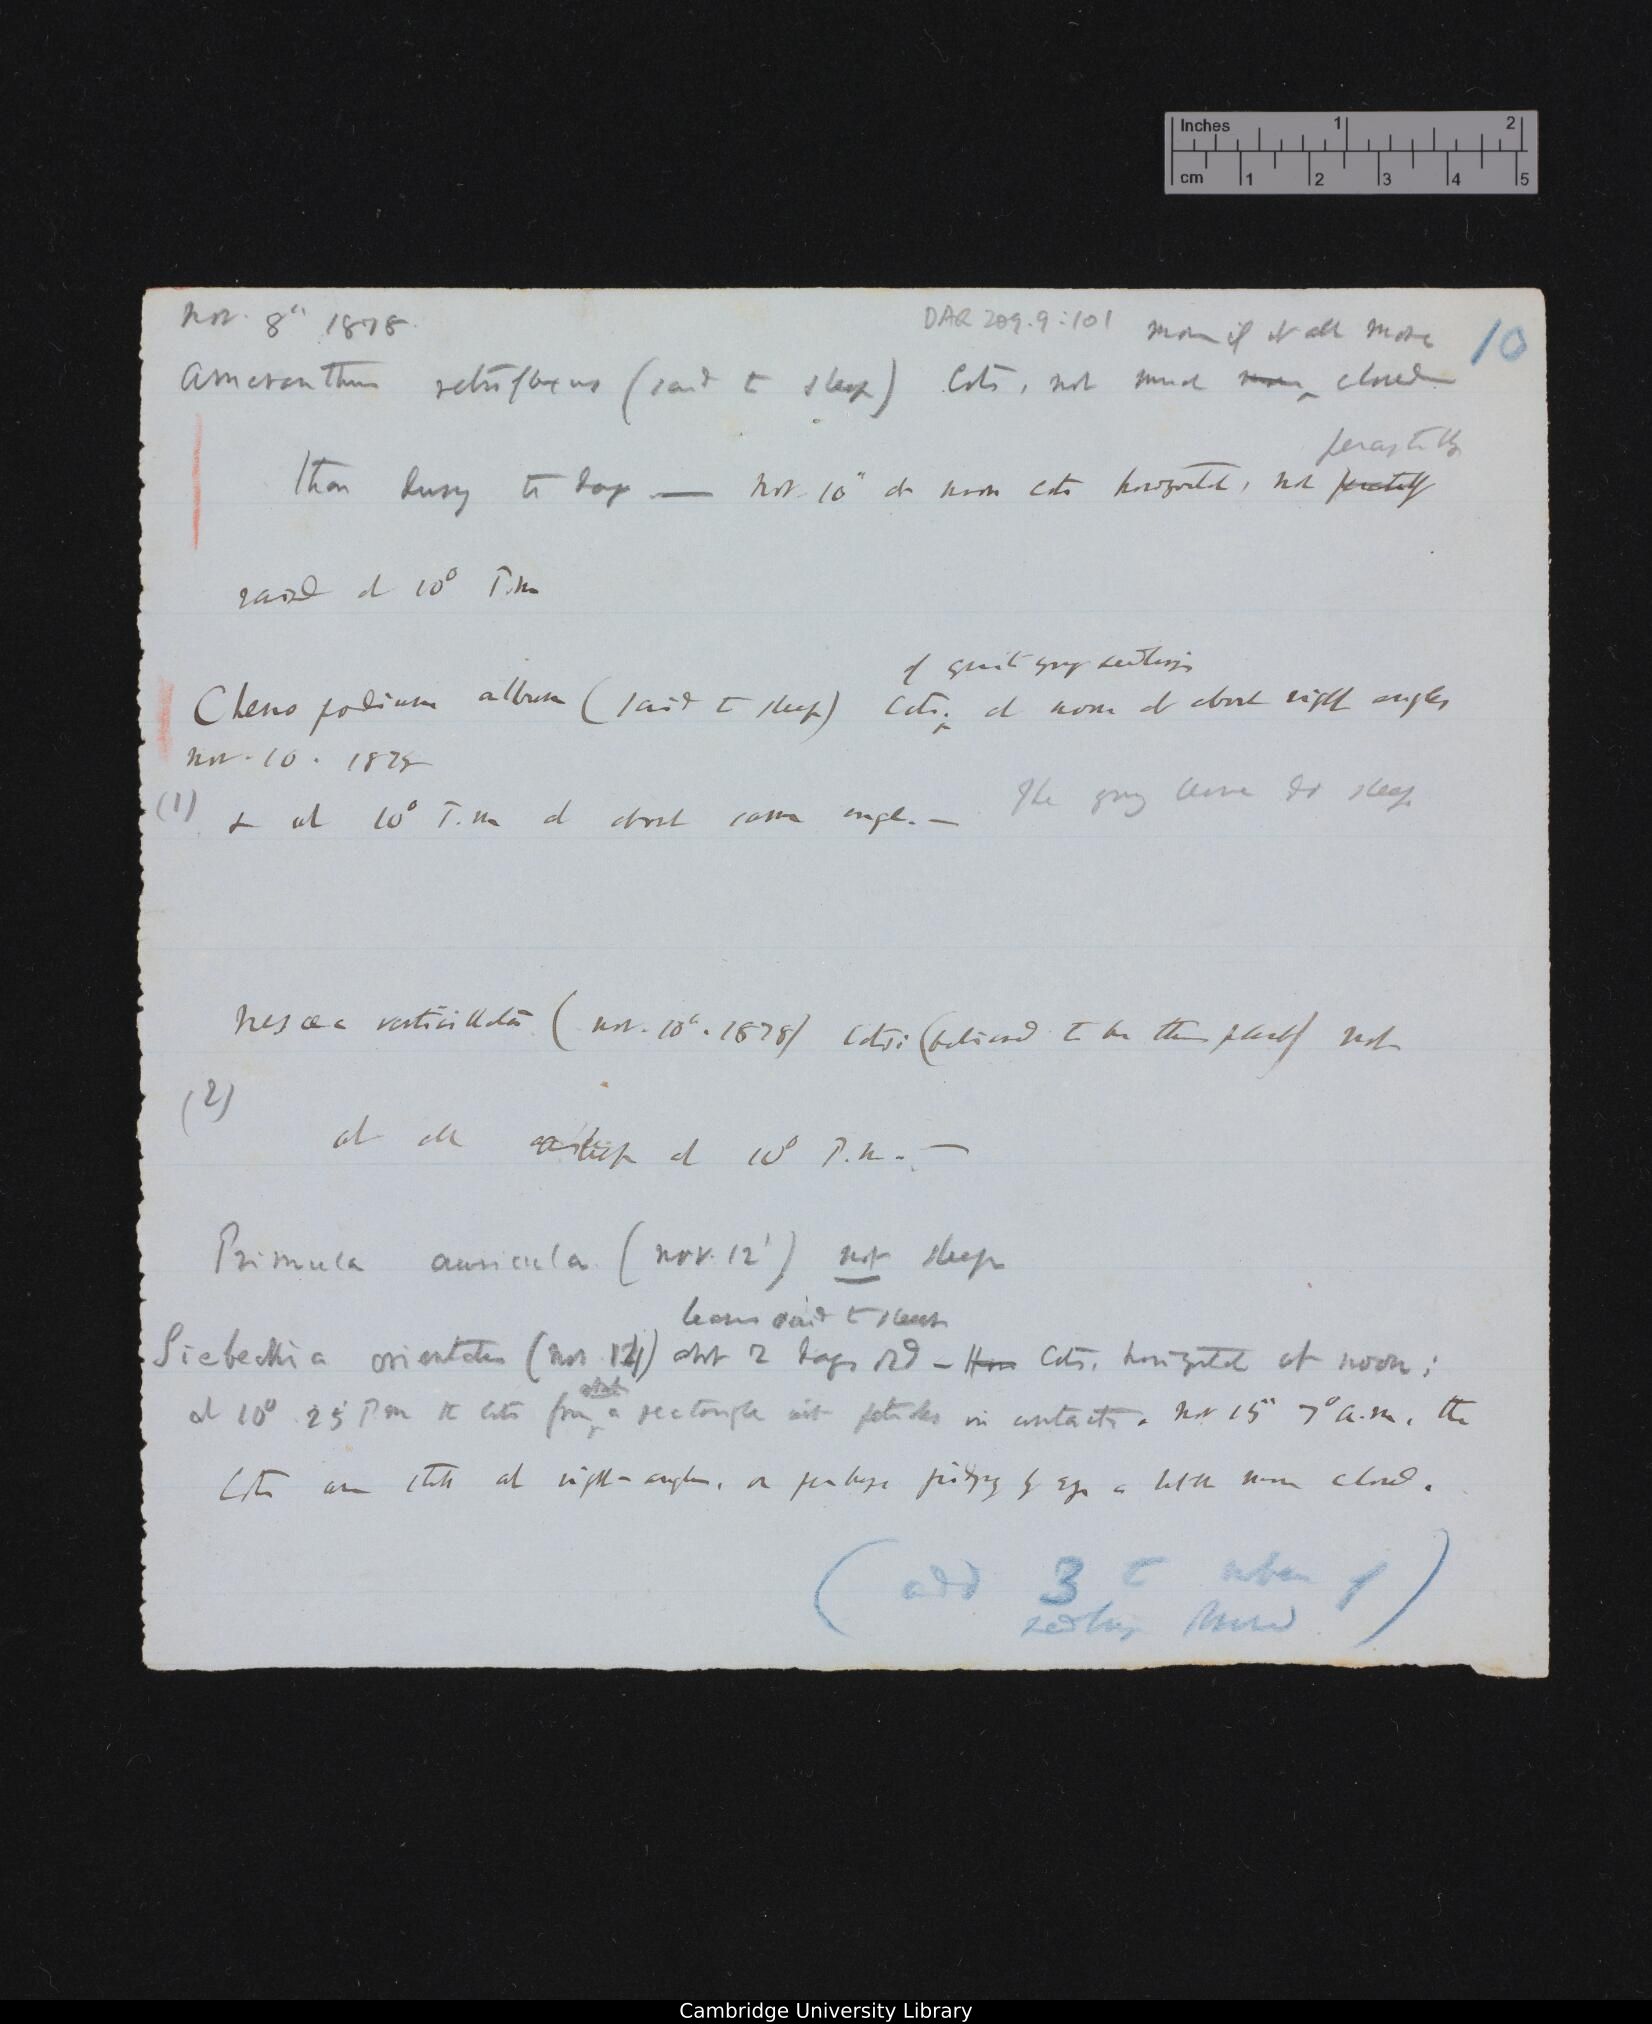 Inches 1 2
cm 1 2 3 4 5
Nov. 8" 1878
DAR 209.9:101
more if at all more
10
Amaranthus retroflexus (said to sleep) Cots, not much more closed
than during the day — Nov. 10" at noon cots horizontal, not
raised at 10° P.m
of quite young seedlings
Chenopodium album (said to sleep) Cots. at noon at about right angles
Nov. 10. 1878
(1) & at 10° P.m at about same angle. — The young leaves do sleep
Nesæa verticillata (Nov. 10". 1878) Cots: (believed to be this plant) not
(2)
at all asleep at 10° P.m. —
Primula auricula (Nov. 12') not sleep
leaves said to sleep
orientalis (Nov 14) about 2 days old — Cots. horizontal at noon;
at 10° 25' P.m the cots form a rectangle with petioles in contact. Nov 15" 7° a.m. the
Cots are still at right-angles, or perhaps judging by eye a little more closed.
(add 3 to number of
seedlings )
Cambridge University Library